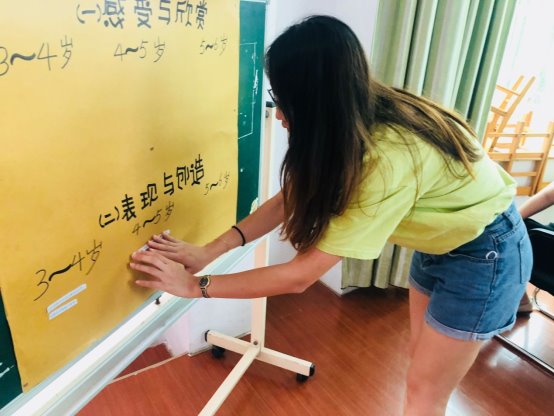 (一)感受与欣赏
3~4岁 4~5岁 5~6岁
(二)表现与创造
3~4岁 4~5岁 5~6岁